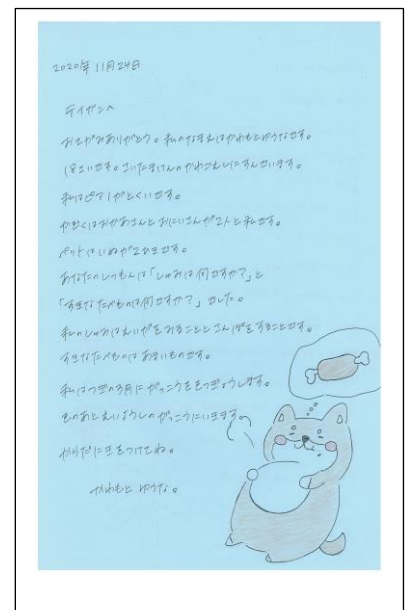 2020年 11月24日
ティガンへ
おてがみありがとう。私のなまえはかわもとゆうなです。
18さいです。さいたまけんのかわごえしにすんでいます。
私はピアノがとくいです。
かぞくはおかあさんとおにいさんが2人と私です。
ペットはいぬが2ひきです。
あなたのしつもんは「しゅみは何ですか？」と
「すきなたべものは何ですか？」でした。
私のしゅみはえいがをみることとさんぽをすることです。
すきなたべものはあまいものです。
私はつぎの3月にがっこうをそつぎょうします。
そのあとえいようしのがっこうにいきます。
からだにきをつけてね。
かわもと ゆうな。